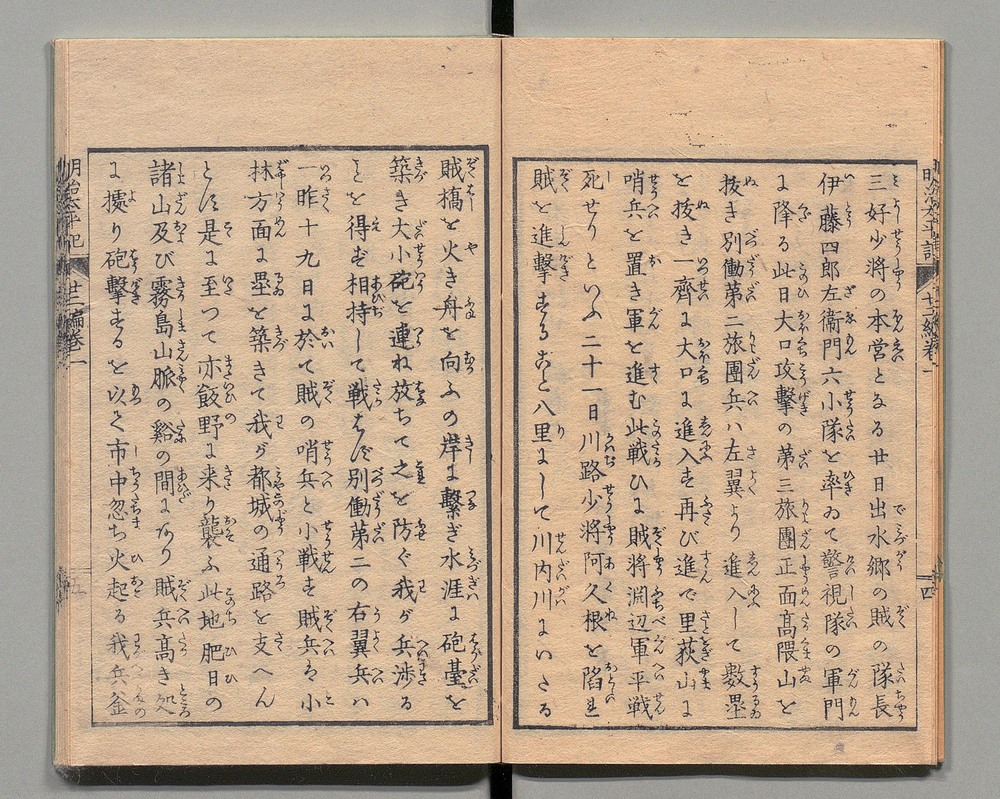 三好少将の本営となる廿日出水郷の賊の隊長
伊藤四郎左衛門六小隊を率ゐて警視隊の軍門
に降る此日大口攻撃の第三旅團正面高隈山を
抜き別働第二旅團兵ハ左翼より進入して數壘
を抜き一齊に大口に進入す再び進で里荻山に
哨兵を置き軍を進む此戦ひに賊將渕辺軍平戦
死せりといふ二十一日川路少將阿久根を陷れ
賊を進撃することハ里にして川内川にいたる
賊橋を火き舟を向ふの岸に繋ぎ水涯に砲䑓を
築き大小砲を連ね放ちて之を防ぐ我が兵渉る
ことを得ず相持して戦ふ此別働第二の右翼兵ハ
一昨十九日に於て賊の哨兵と小戦す賊兵る小
林方面に壘を築きて我が都城の通路を支へん
とす是に至つて亦飯野に来り襲ふ此地肥日の
諸山及び霧島山脈の谿の間にあり賊兵髙き処
に據り砲擊するを以て市中忽ち火起る我兵釜
明治太平記
廿三編巻二
五
四